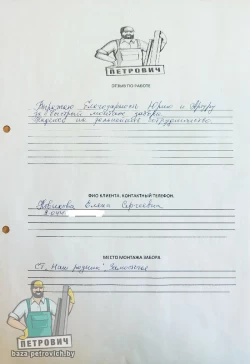 ПЕТРОВИЧ
ОТЗЫВ ПО РАБОТЕ
Выражаю благодарность Юрию и Артуру
за быстрый монтаж забора.
Надеюсь на дальнейшее сотрудничество.
ФИО КЛИЕНТА. КОНТАКТНЫЙ ТЕЛЕФОН.
Елена Сергеевна
МЕСТО МОНТАЖА ЗАБОРА
СТ. "Наш родник" Замосточье
ПЕТРОВИЧ
baza-petrovich.by